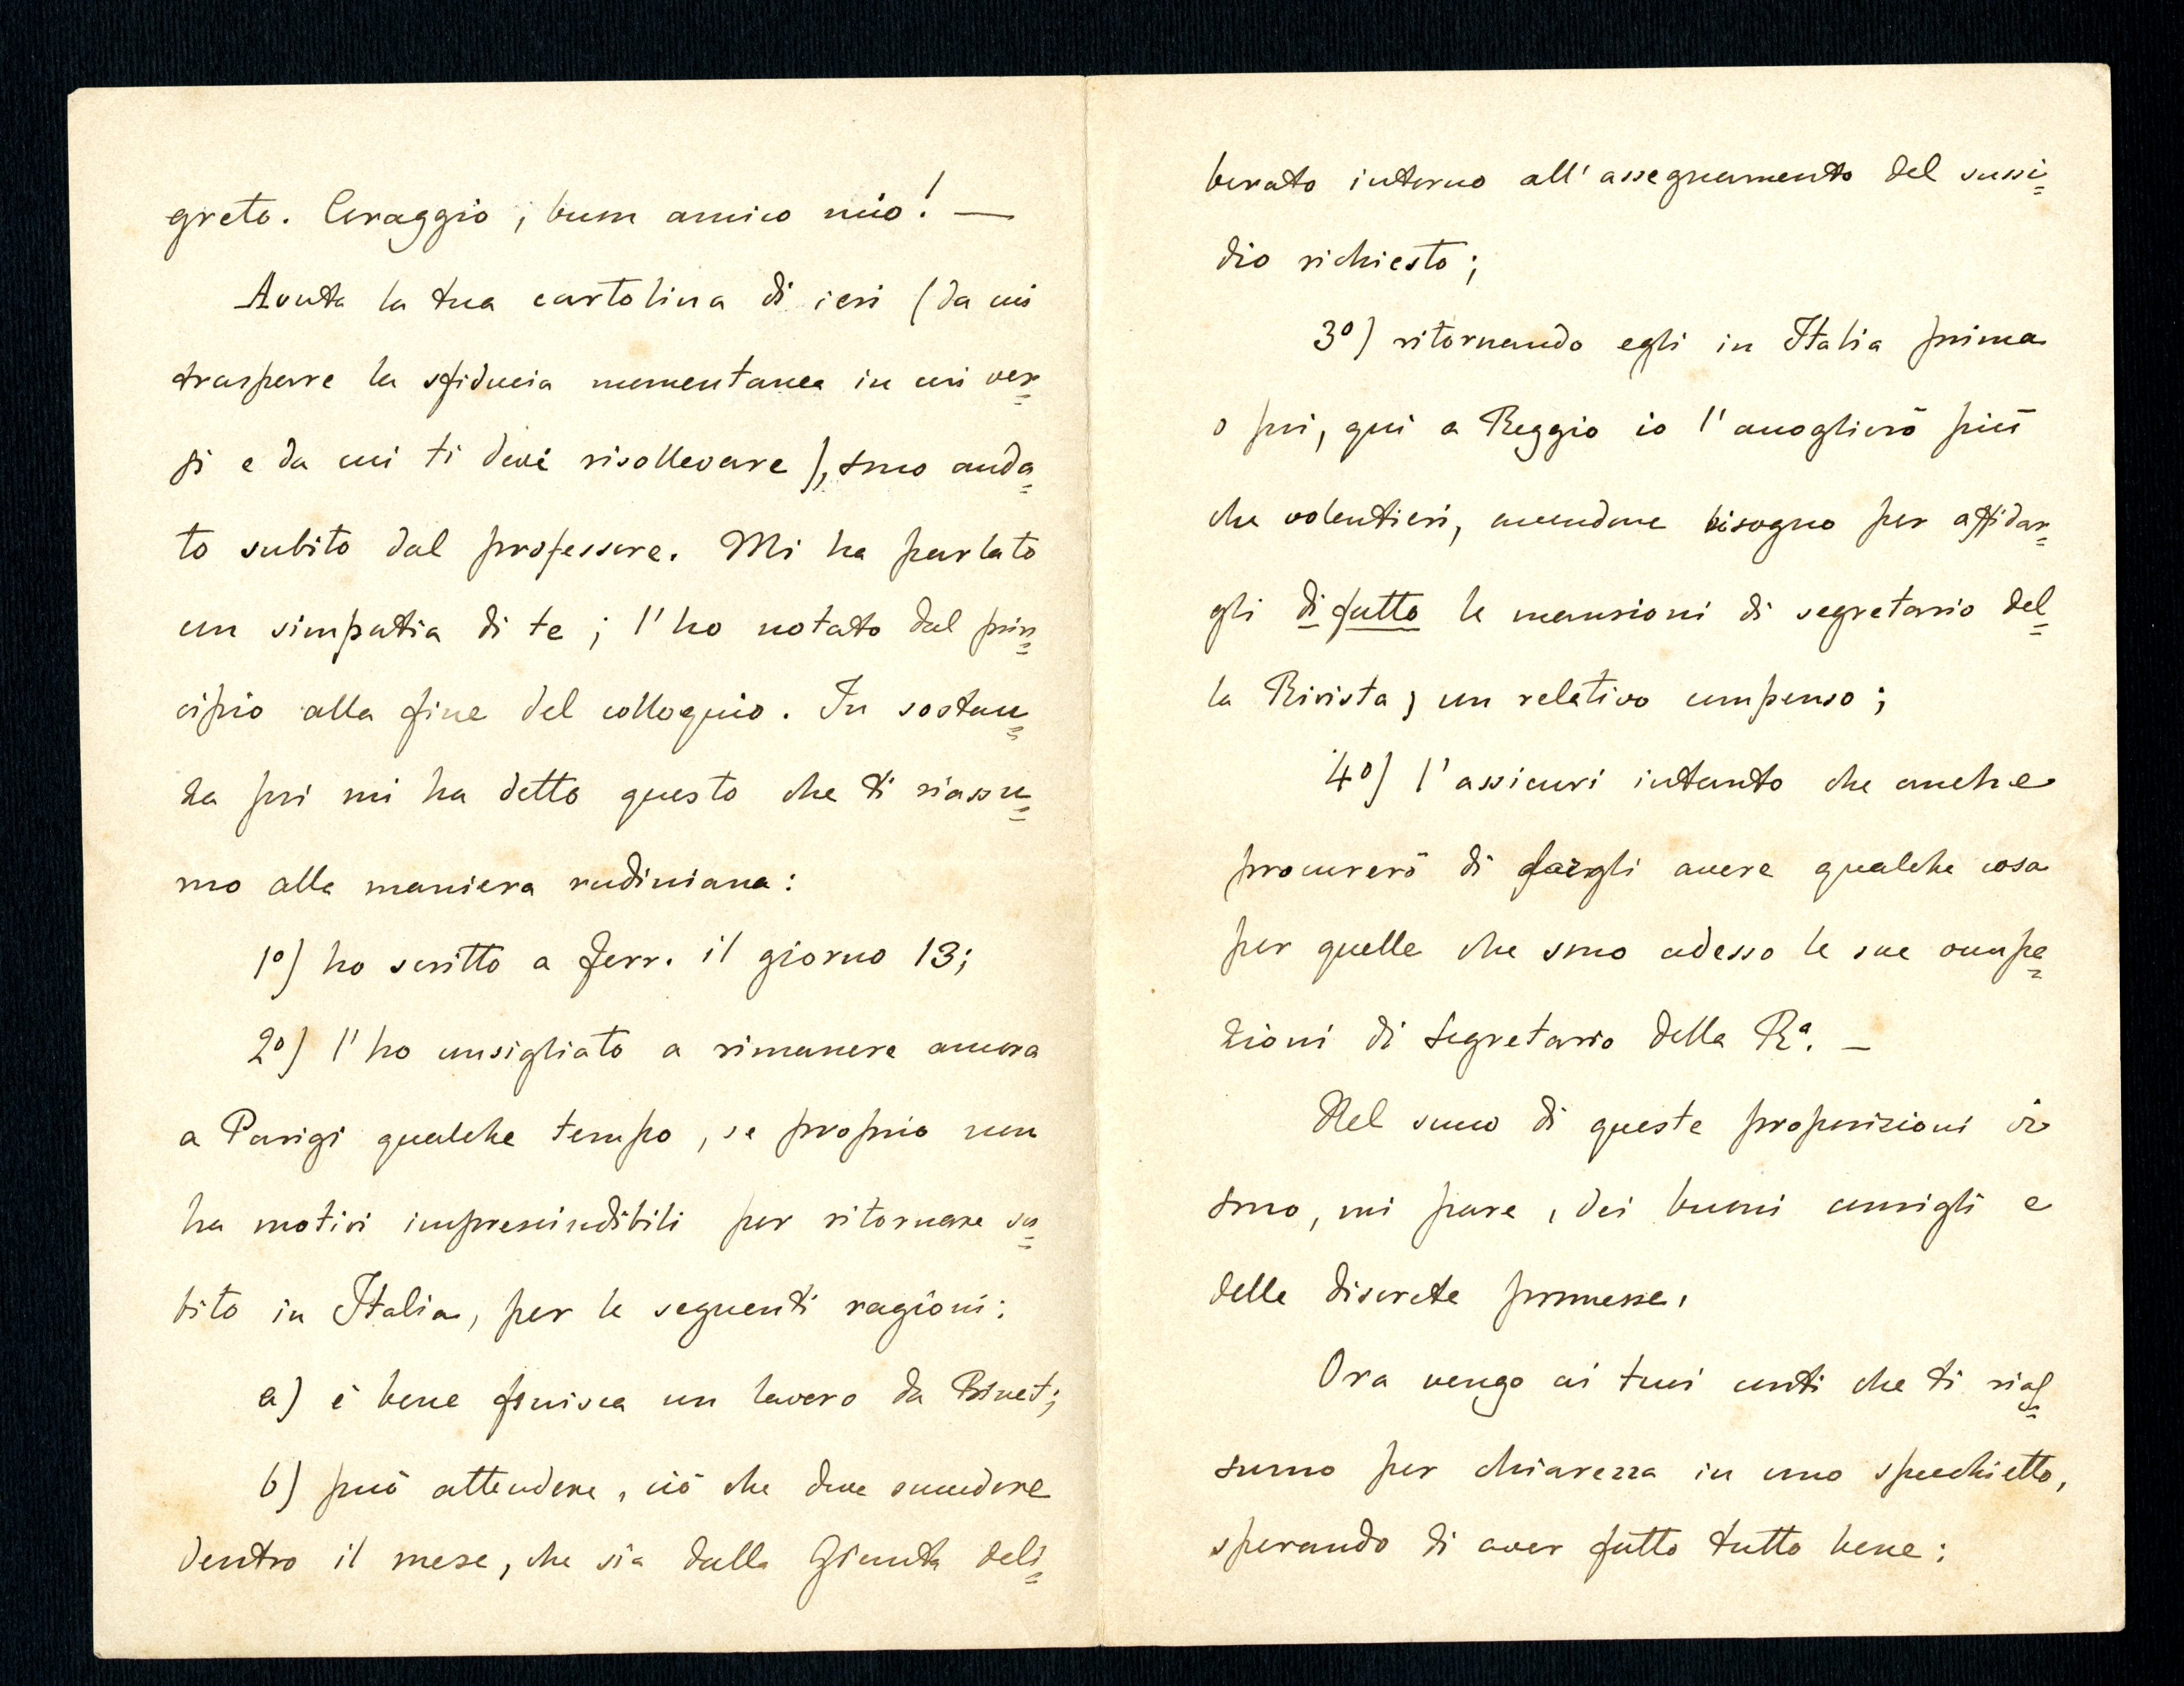 greto. Coraggio, buon amico mio! —
Avuta la tua cartolina di ieri (da cui
trasparve la sfiducia momentanea in cui ver=
si e da cui ti devi risollevare), sono anda=
to subito dal professore. Mi ha parlato
con simpatia di te; l'ho notato dal prin=
cipio alla fine del colloquio. In sostan=
za poi mi ha detto questo che ti riassu=
mo alla maniera rudiniana:
1º) ho scritto a Ferr. il giorno 13;
2º) l'ho consigliato a rimanere ancora
a Parigi qualche tempo, se proprio non
ha motivi imprescindibili per ritornare su=
bito in Italia, per le seguenti ragioni:
a) è bene finisca un lavoro da Binet;
b) può attendere, ciò che deve succedere
dentro il mese, che sia dalla Giunta deli=
berato intorno all'assegnamento del sussi=
dio richiesto;
3º) ritornando egli in Italia prima
o poi, qui a Reggio io l'accoglierò più
che volentieri, avendone bisogno per affidar=
gli di fatto le mansioni di segretario del=
la Rivista, con relativo compenso;
4º) l'assicuri intanto che anche
procurerò di fargli avere qualche cosa
per quelle che sono adesso le sue occupa=
zioni di segretario della Rª. —
Nel succo di queste proposizioni vi
sono, mi pare, dei buoni consigli e
delle discrete promesse.
Ora vengo ai tuoi conti che ti rias=
sumo per chiarezza in uno specchietto,
sperando di aver fatto tutto bene: